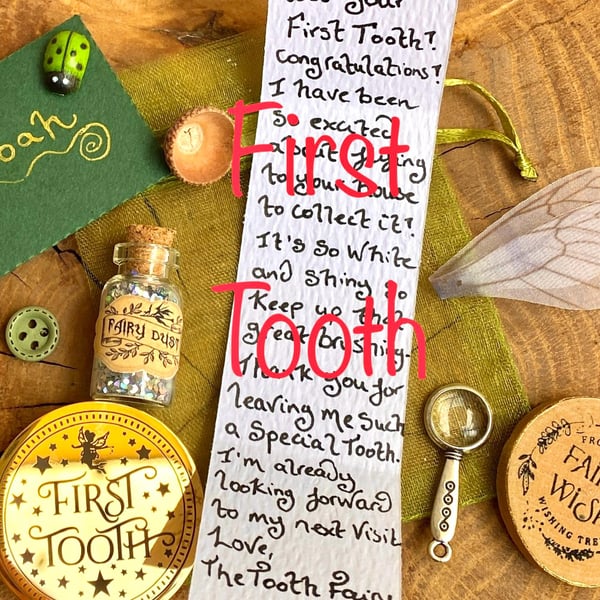 First Tooth?
Congratulations?
I have been
so excited
about flying
to your house
to collect it?
It's so white
and shiny so
keep up that
great brushing.
Thank you for
leaving me such
a special Tooth.
I'm already
looking forward
to my next visit
Love,
The Tooth Fairy
First
Tooth
oah
FAIRY DUST
FIRST
TOOTH
FRO
FAI
WIS
WISHING TRE